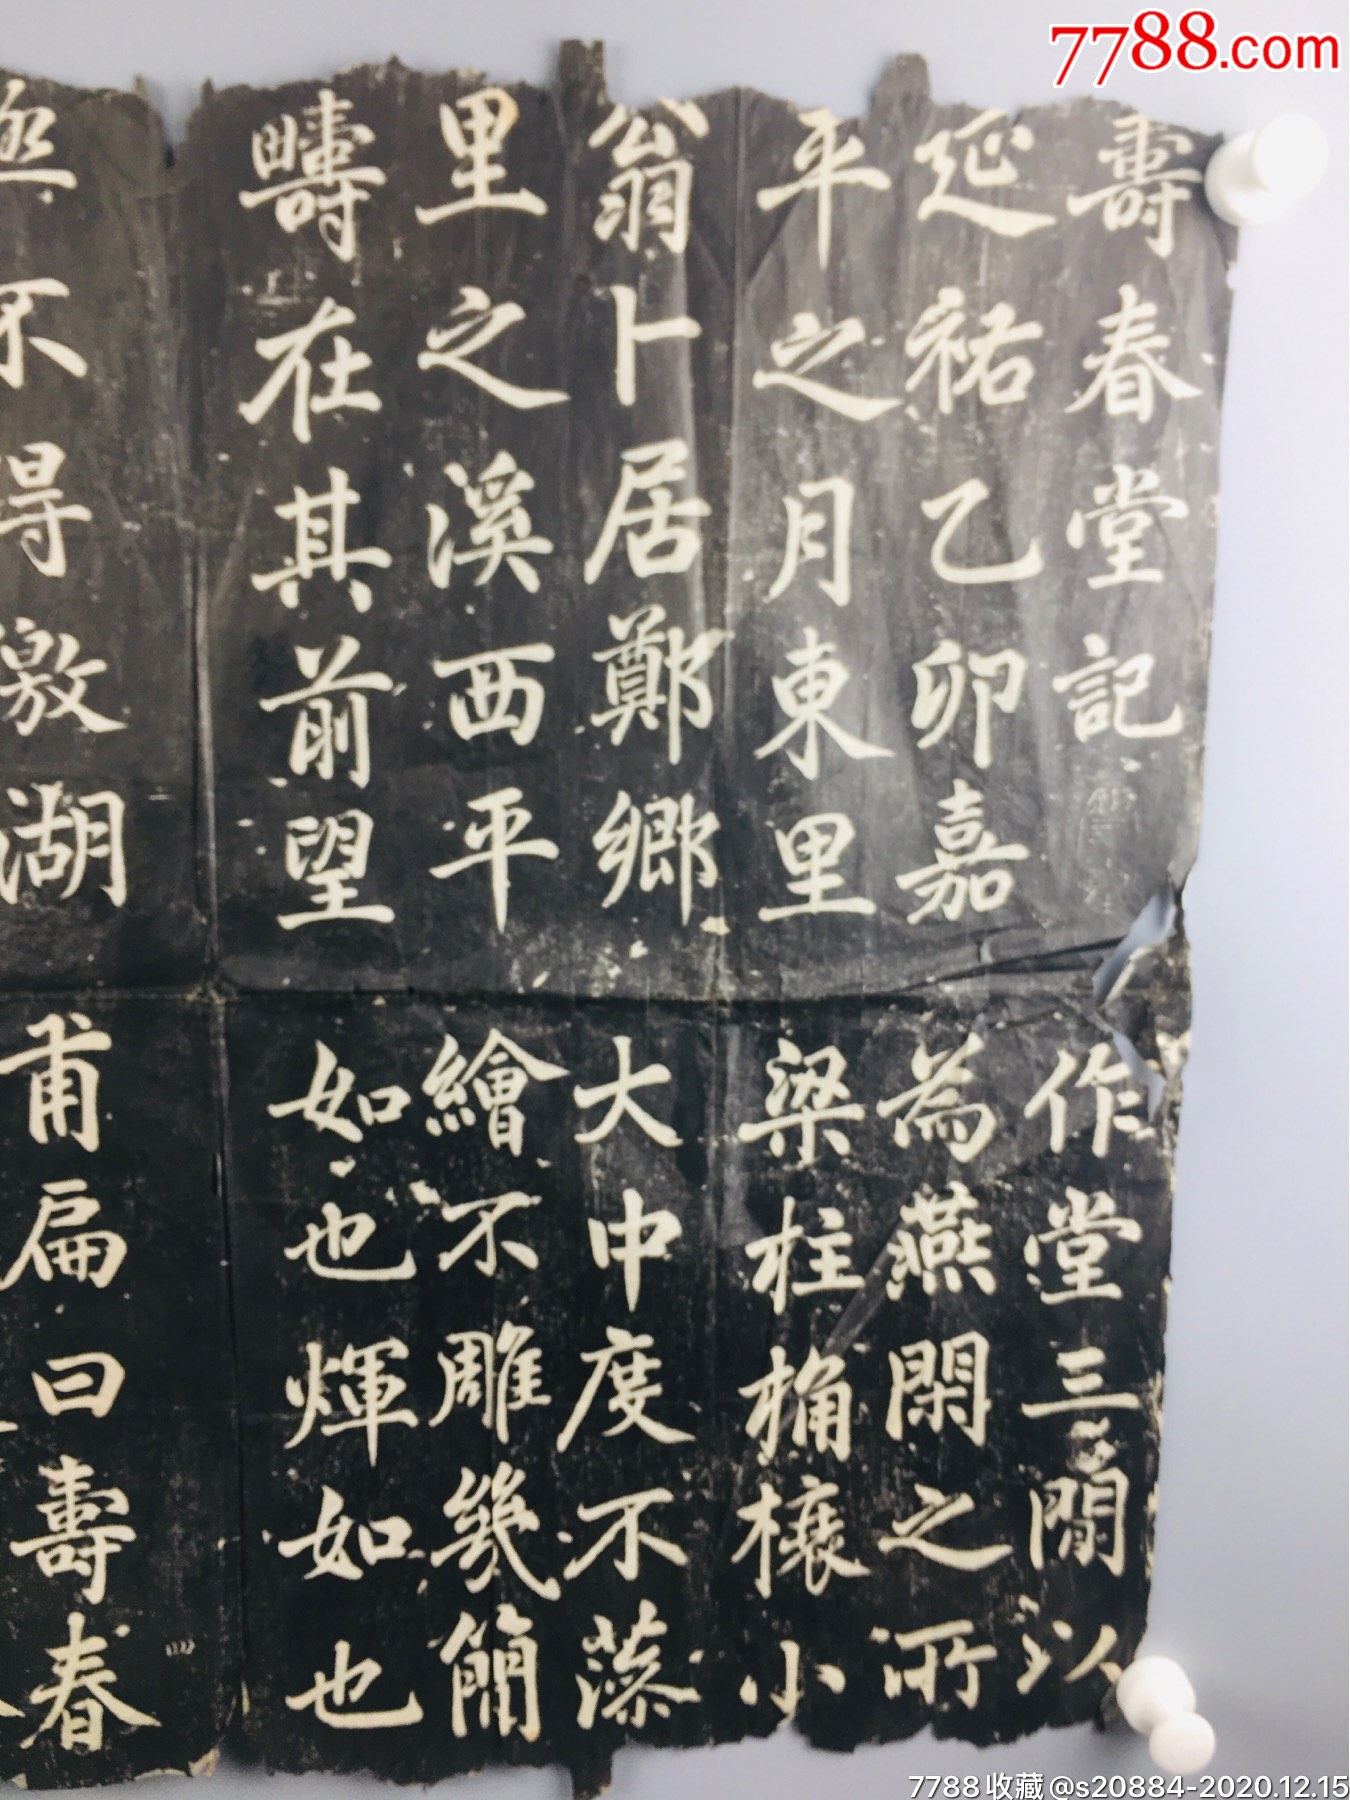 7788.com
壽春堂記
延祐乙卯嘉
平之月東里
翁卜居鄭鄉
里之溪西平
疇在其前望
不得激湖
作堂三閒以
為燕閑之所
梁柱桷榱小
大中度不藻
繪不雕幾簡
如也煇如也
甫扁曰壽春
7788收藏@s20884-2020.12.15